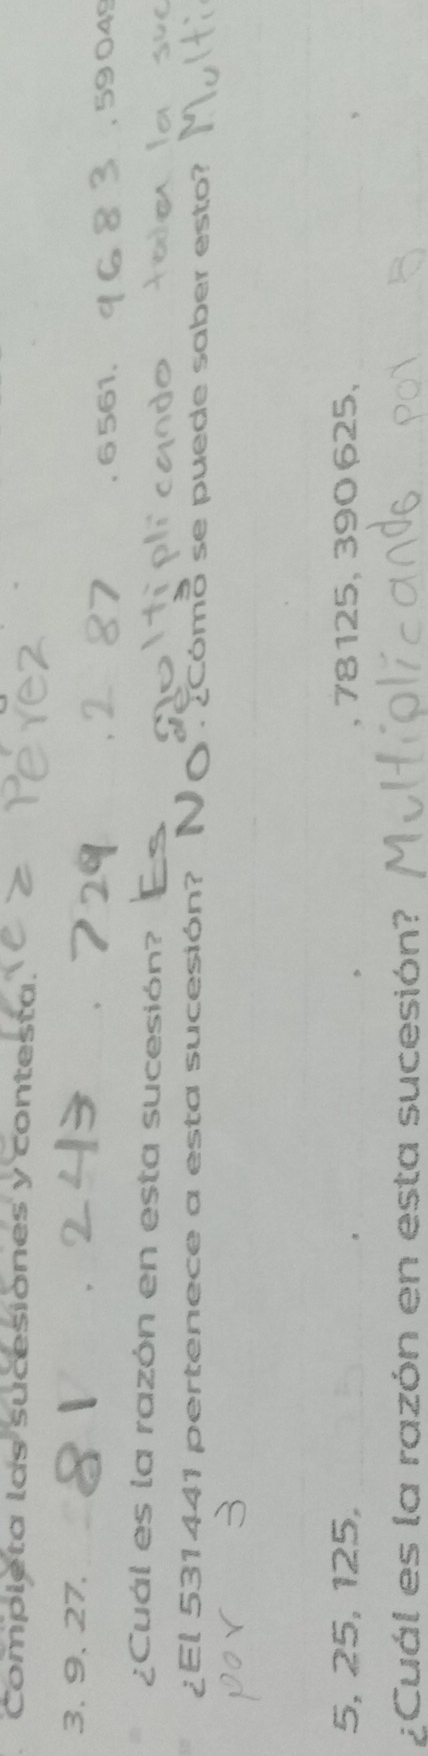 Completa las sucesiones y contesta. Pérez
3. 9. 27. 81 . 243 . 729 . 2 87 . 6561. 9683 . 59049
¿Cuál es la razón en esta sucesión? Es multiplicando toda la suc
¿El 531441 pertenece a esta sucesión? No. ¿Cómo se puede saber esto? Multi
por 3
5, 25, 125, . . . 78125, 390625, .
¿Cuál es la razón en esta sucesión? Multiplicando por 5